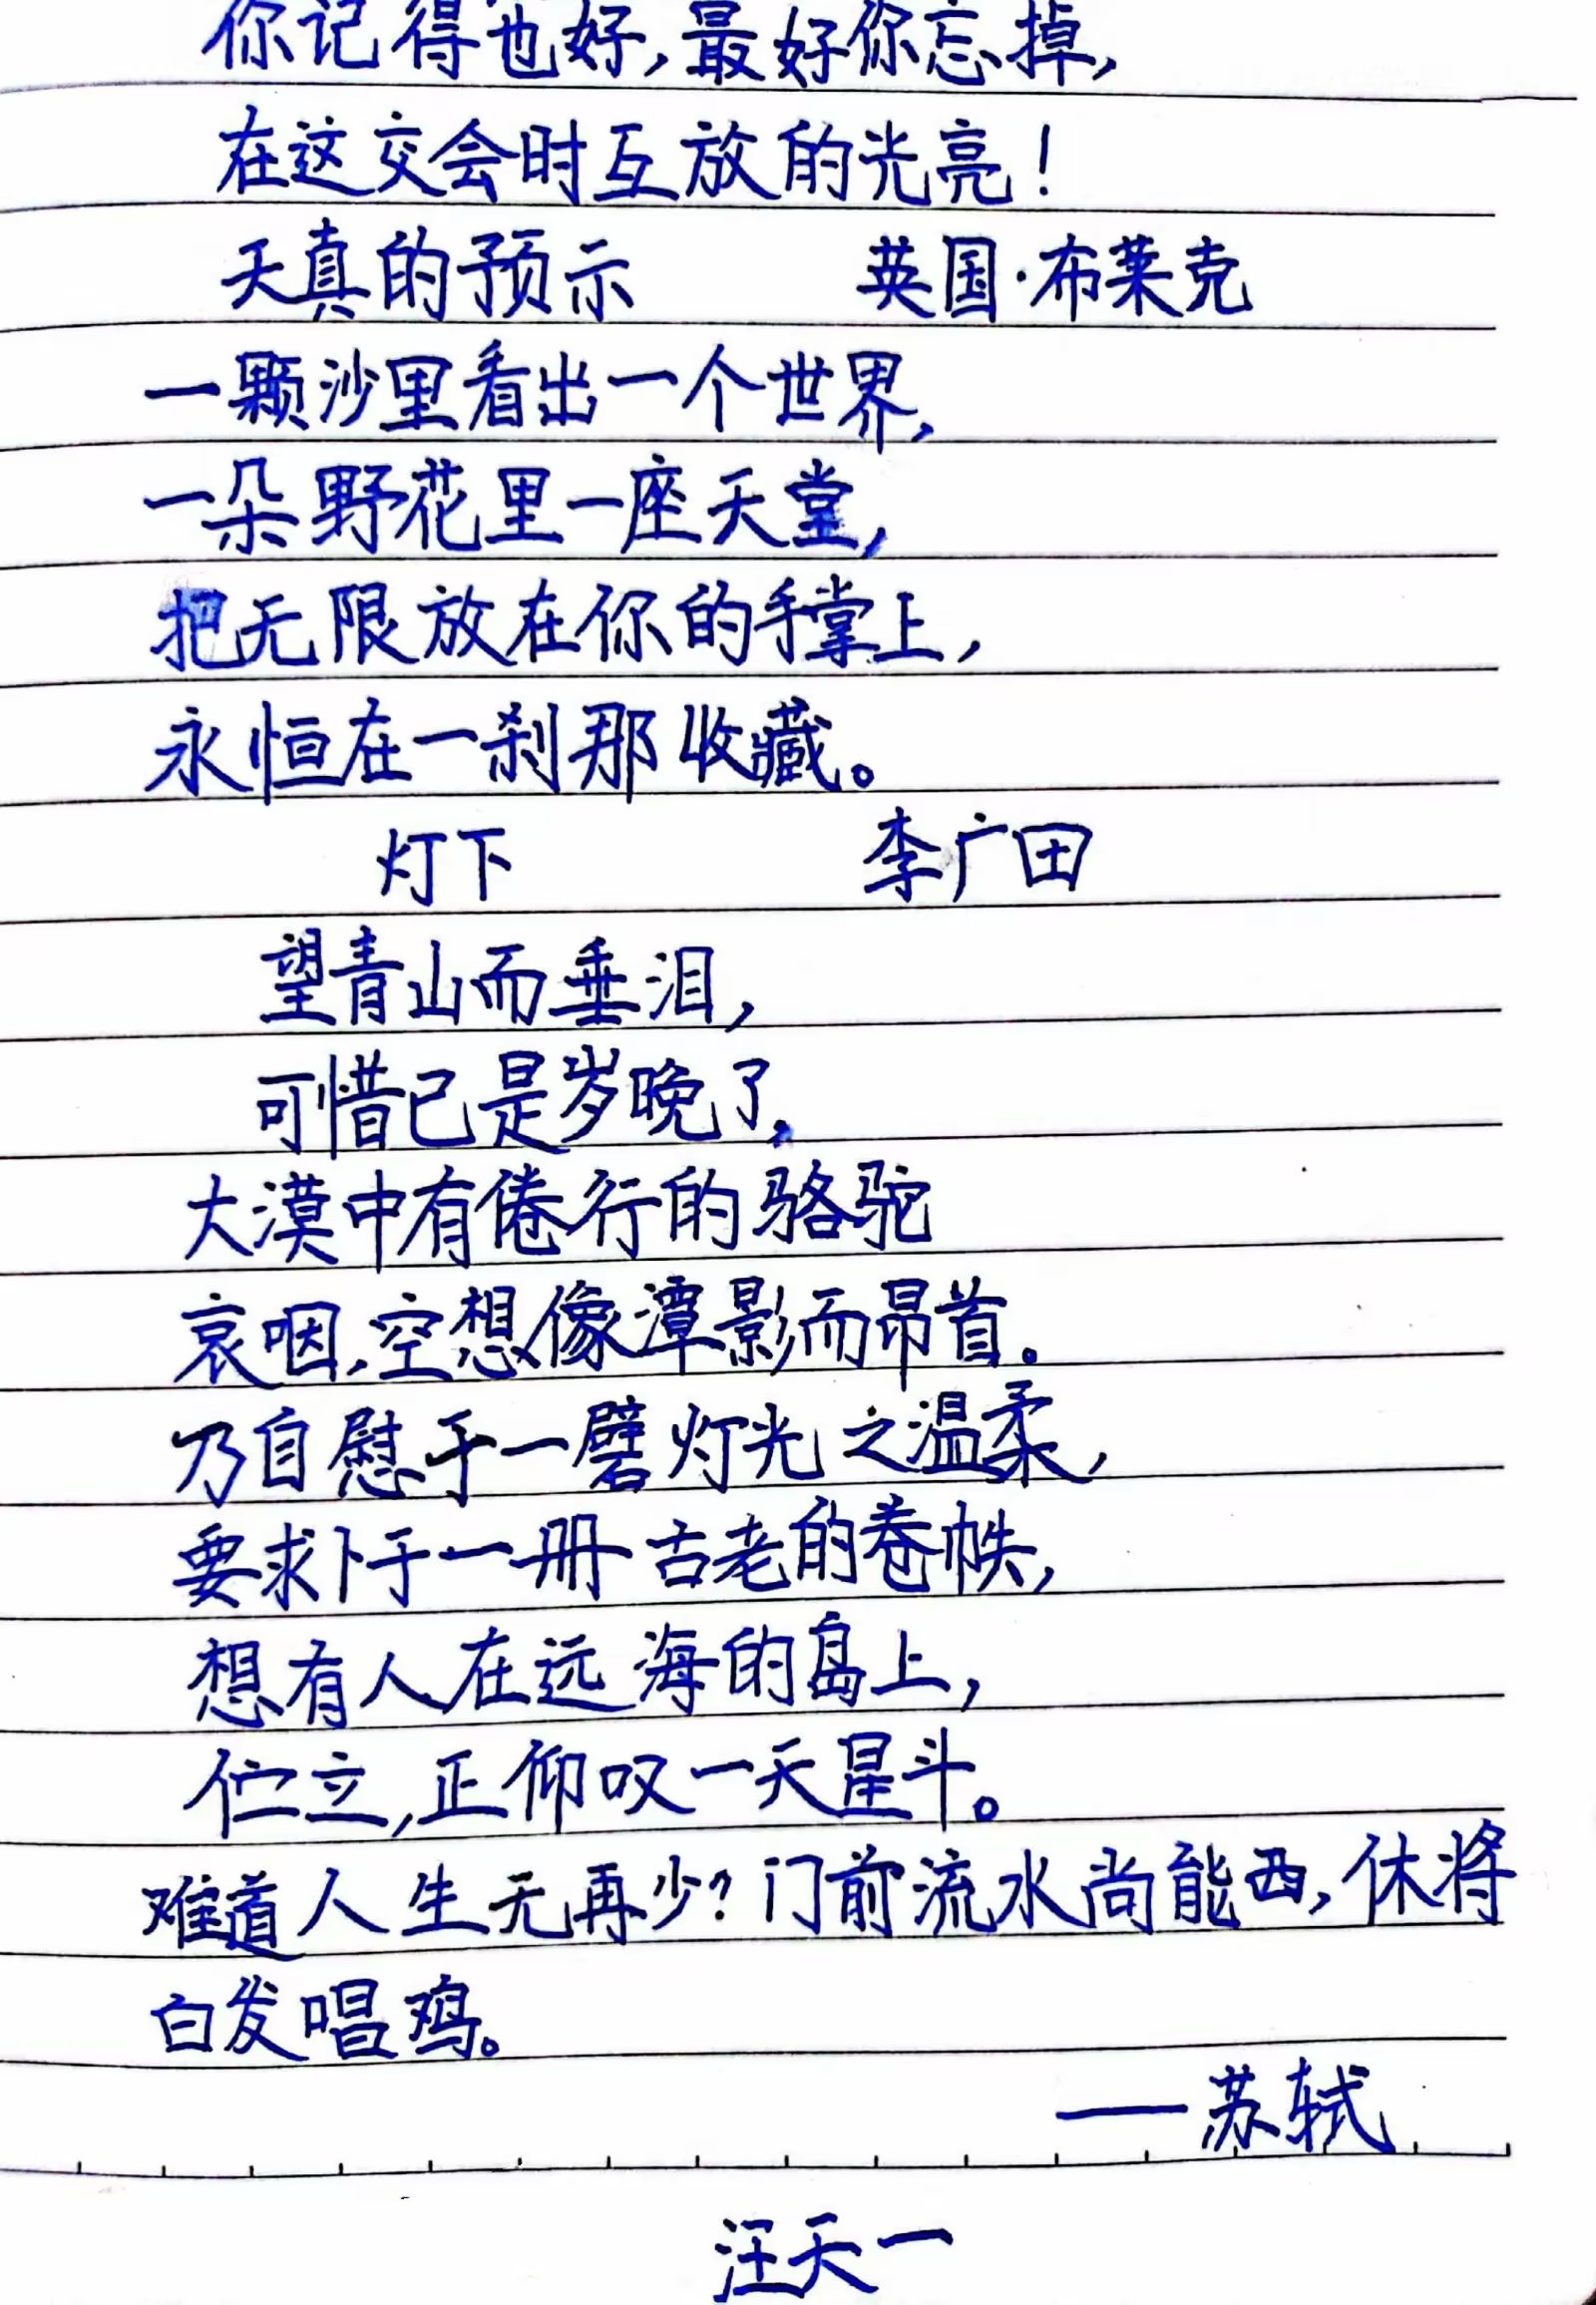 你记得也好,最好你忘掉,
在这交会时互放的光亮!
天真的预示 英国·布莱克
一颗沙里看出一个世界,
一朵野花里一座天堂,
把无限放在你的手掌上,
永恒在一刹那收藏。
灯下 李广田
望青山而垂泪,
可惜已是岁晚了,
大漠中有倦行的骆驼
哀咽,空想像潭影而昂首。
乃自慰于一襞灯光之温柔,
要求卜于一册古老的卷帙,
想有人在远海的岛上,
伫立,正仰叹一天星斗。
难道人生无再少?门前流水尚能西,休将
白发唱鸡。
——苏轼
汪天一